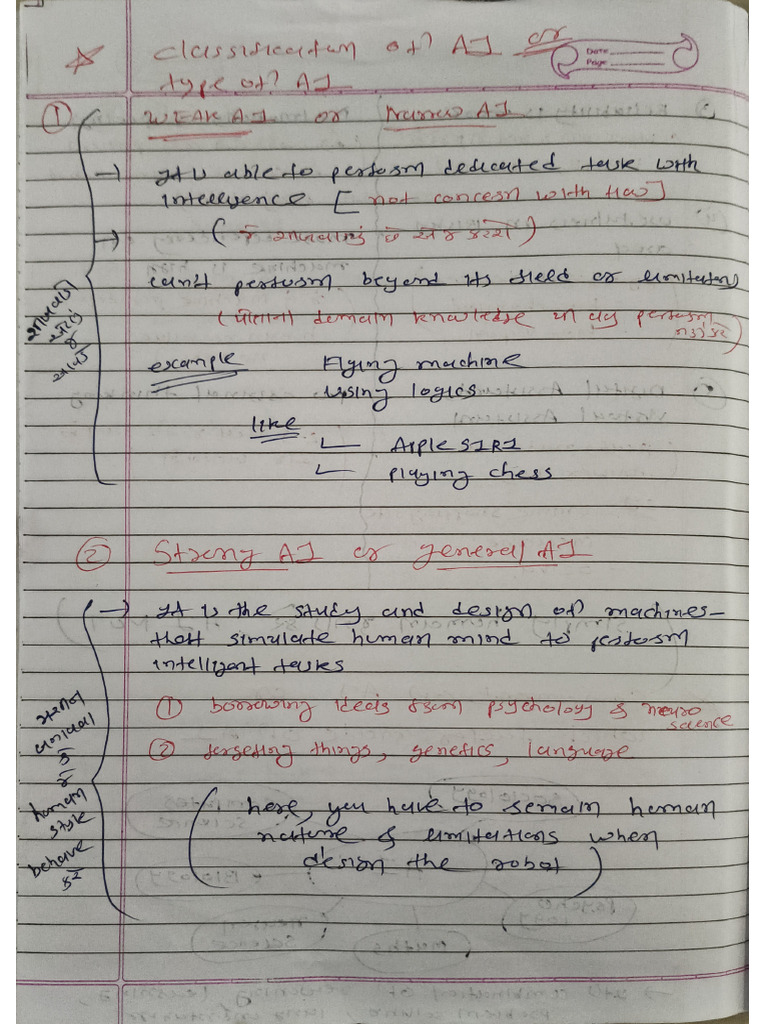 classification of AI or
Date
Page
type of AI
① WEAK AI or Narrow AI
→ It is able to perform dedicated task with
intelligence [not concern with how]
→ (જે આપવાનું છે એ જ કરશે)
can't perform beyond its field or limitations
(પોતાના domain knowledge થી વધુ perform
example Flying machine
Using logics
like
Apple SIRI
Playing chess
② Strong AI or general AI
→ It is the study and design of machines
that simulate human mind to perform
intelligent tasks
① borrowing ideas from psychology & neuro
science
② forgetting things, genetics, language
human
style
behave
કરે
(here, you have to remain human
nature & limitations when
design the robot)